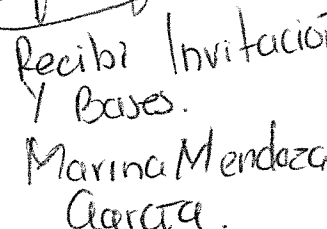 Recibi Invitación
Y Bases.
Marina Mendoza
García.